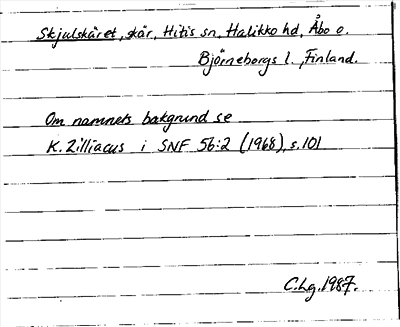 Skjulskäret, skär, Hitis sn, Halikko hd, Åbo o.
Björneborgs l., Finland.
Om namnets bakgrund se
K. Zilliacus i SNF 56:2 (1968), s. 101
C.Lg. 1987.